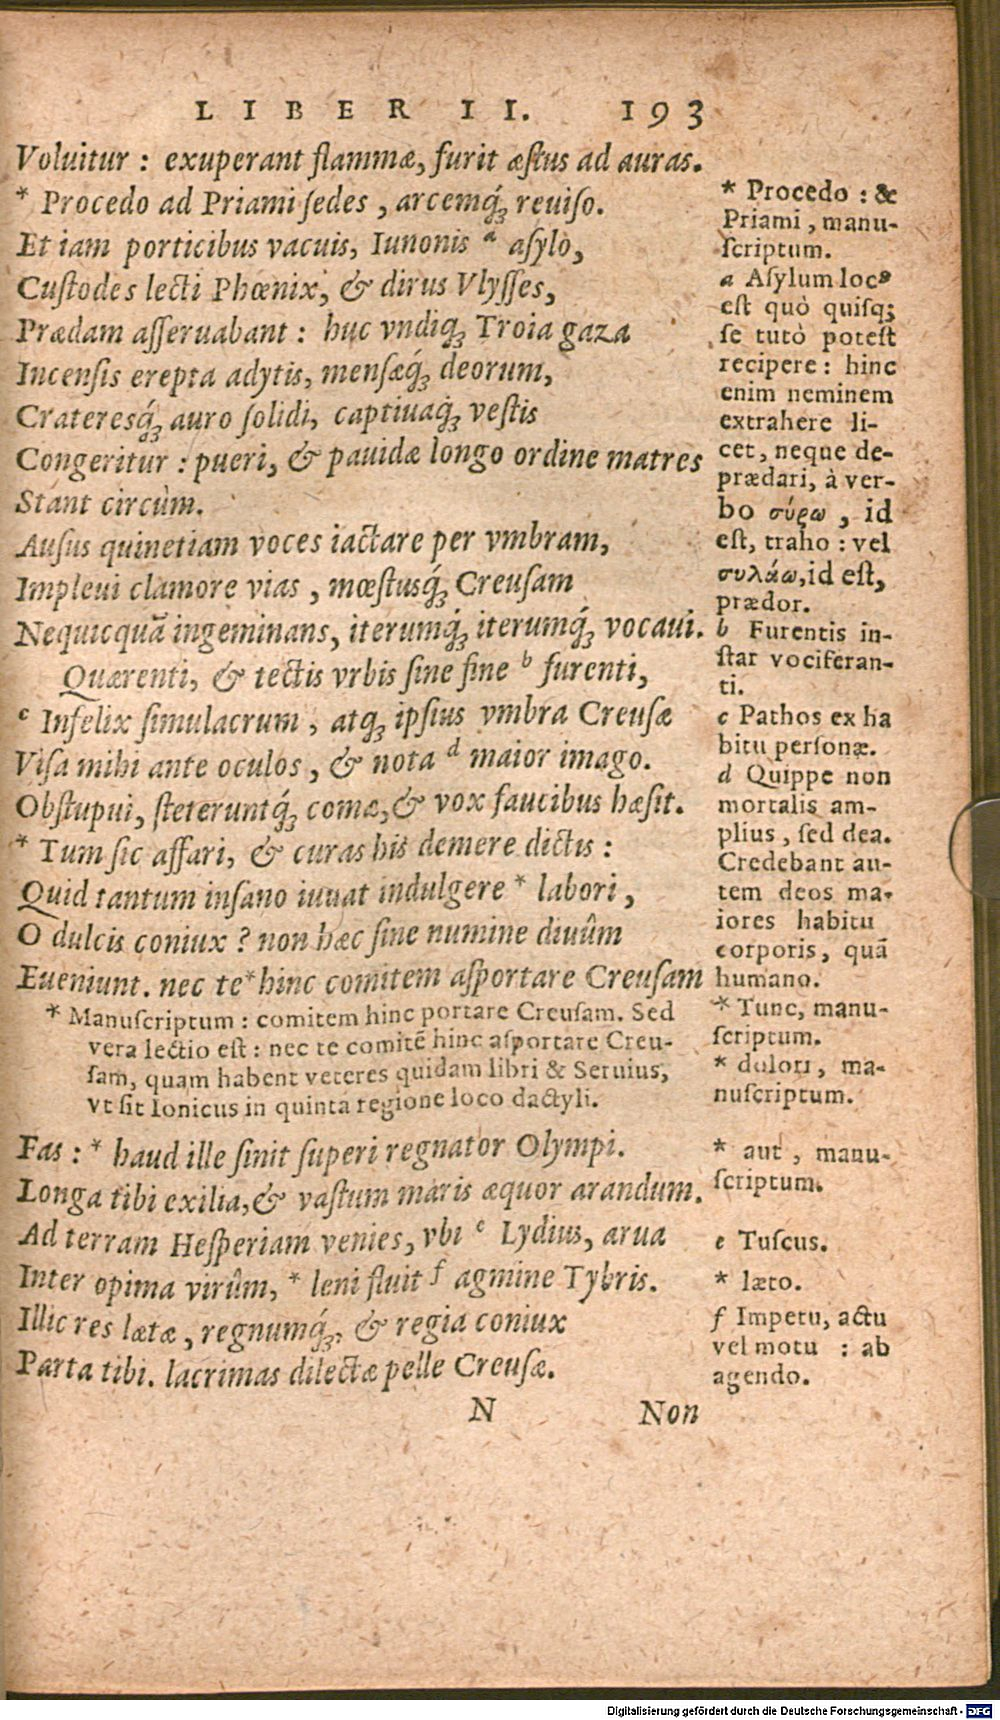 LIBER II. 193
Voluitur : exuperant flammæ, furit æstus ad auras.
* Procedo ad Priami sedes, arcemq́ꝫ reuiso.
Et iam porticibus vacuis, Iunonis ᵃ asylo,
Custodes lecti Phœnix, & dirus Vlysses,
Prædam asseruabant : huc vndiqꝫ Troia gaza
Incensis erepta adytis, mensæq́ꝫ deorum,
Crateresq́ꝫ auro solidi, captiuaq́ꝫ vestis
Congeritur : pueri, & pauidæ longo ordine matres
Stant circùm.
Ausus quinetiam voces iactare per vmbram,
Impleui clamore vias, mœstusq́ꝫ Creusam
Nequicquã ingeminans, iterumq́ꝫ iterumq́ꝫ vocaui.
Quærenti, & tectis vrbis sine fine ᵇ furenti,
ᶜ Infelix simulacrum, atqꝫ ipsius vmbra Creusæ
Visa mihi ante oculos, & nota ᵈ maior imago.
Obstupui, steteruntq́ꝫ comæ, & vox faucibus hæsit.
* Tum sic affari, & curas his demere dictis :
Quid tantum insano iuuat indulgere * labori,
O dulcis coniux ? non hæc sine numine diuûm
Eueniunt. nec te * hinc comitem asportare Creusam
* Manuscriptum : comitem hinc portare Creusam. Sed
vera lectio est : nec te comitẽ hinc asportare Creu-
sam, quam habent veteres quidam libri & Seruius,
vt sit Ionicus in quinta regione loco dactyli.
Fas : * haud ille sinit superi regnator Olympi.
Longa tibi exilia, & vastum maris æquor arandum.
Ad terram Hesperiam venies, vbi ᵉ Lydius, arua
Inter opima virûm, * leni fluit ᶠ agmine Tybris.
Illic res lætæ, regnumq́ꝫ, & regia coniux
Parta tibi. lacrimas dilectæ pelle Creusæ.
N Non
* Procedo : &
Priami, manu-
scriptum.
a Asylum locꝰ
est quò quisq;
se tutò potest
recipere : hinc
enim neminem
extrahere li-
cet, neque de-
prædari, à ver-
bo σύρω, id
est, traho : vel
συλάω, id est,
prædor.
b Furentis in-
star vociferan-
ti.
c Pathos ex ha
bitu personæ.
d Quippe non
mortalis am-
plius, sed dea.
Credebant au-
tem deos ma-
iores habitu
corporis, quã
humano.
* Tunc, manu-
scriptum.
* dolori, ma-
nuscriptum.
* aut, manu-
scriptum.
e Tuscus.
* læto.
f Impetu, actu
vel motu : ab
agendo.
Digitalisierung gefördert durch die Deutsche Forschungsgemeinschaft - DFG